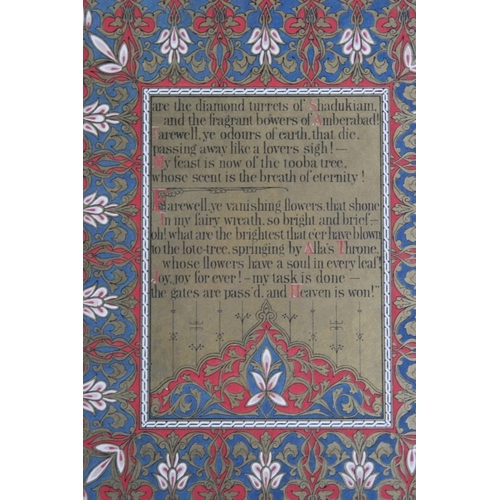 are the diamond turrets of Shadukiam,
and the fragrant bowers of Amberabad!
Farewell, ye odours of earth, that die,
passing away like a lovers sigh!—
My feast is now of the tooba tree,
whose scent is the breath of eternity!
Farewell, ye vanishing flowers, that shone
In my fairy wreath, so bright and brief—
oh! what are the brightest that e'er have blown
to the lote-tree, springing by Alla's Throne,
whose flowers have a soul in every leaf!
Joy, joy for ever!—my task is done—
the gates are pass'd, and Heaven is won!"